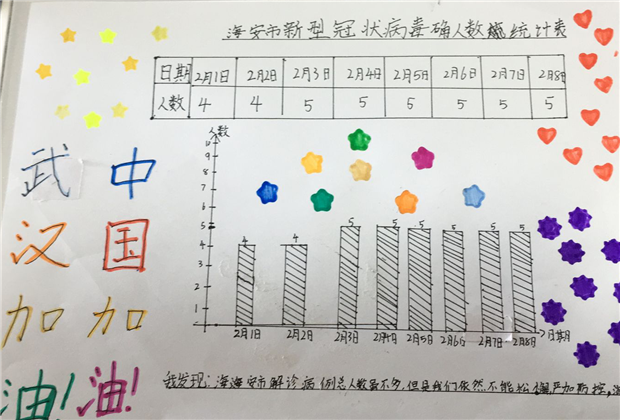 海安市新型冠状病毒确人数统计表
日期 2月1日 2月2日 2月3日 2月4日 2月5日 2月6日 2月7日 2月8日
人数 4 4 5 5 5 5 5 5
人数
10
9
8
7
6
5
4
3
2
1
4 4 5 5 5 5 5 5
2月1日 2月2日 2月3日 2月4日 2月5日 2月6日 2月7日 2月8日 日期
武汉加油!
中国加油!
我发现:海海安市 诊病例总人数虽不多,但是我们依然不能松懈,严加防控,